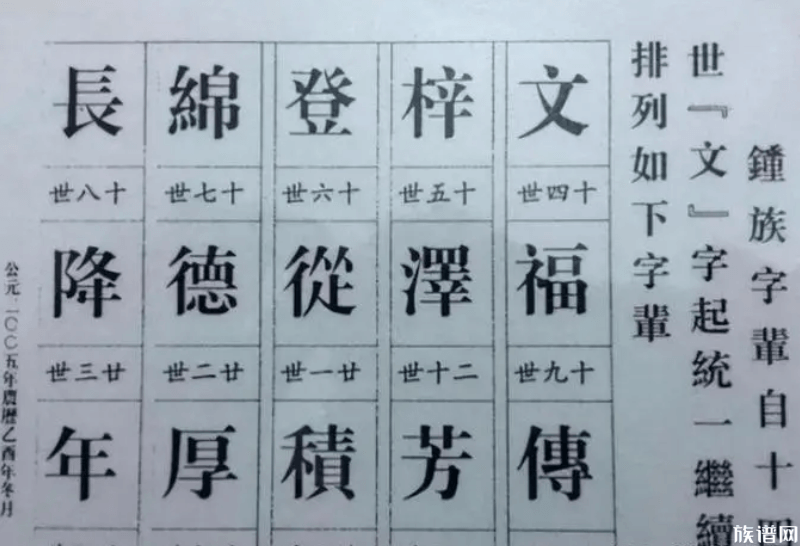 鍾族字輩自十四
世『文』字起統一繼續
排列如下字輩
文 梓 登 綿 長
十四世 十五世 十六世 十七世 十八世
福 澤 從 德 降
十九世 二十世 廿一世 廿二世 廿三世
傳 芳 積 厚 年
公元二〇〇五年農曆乙酉年冬月
族谱网